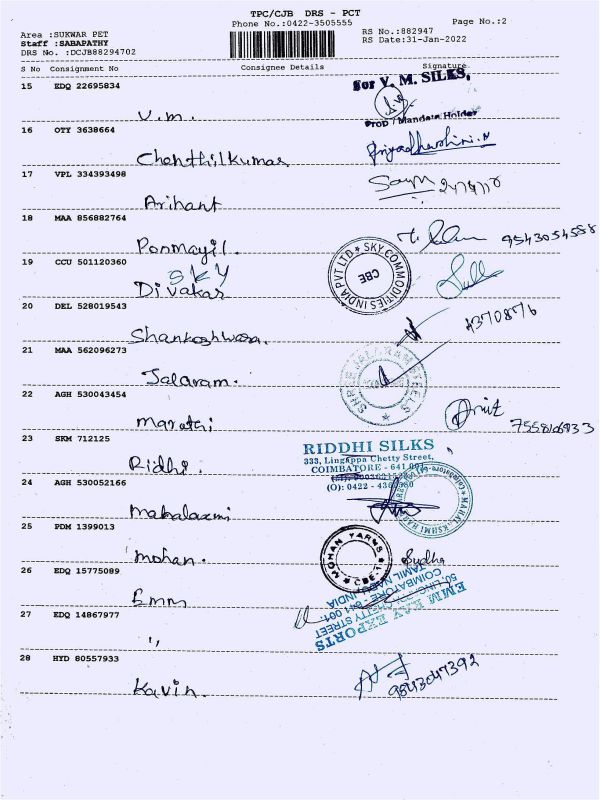 TPC/CJB DRS - PCT
Phone No.:0422-3505555
Page No.:2
Area :SUKWAR PET
Staff :SABAPATHY
DRS No. :DCJB88294702
RS No.:882947
RS Date:31-Jan-2022
S No Consignment No Consignee Details Signature
15 EDQ 22695834
For V. M. SILKS,
Prop / Mandate Holder
V.m.
16 OTY 3638664
Chenthilkumar
Priyadharshini.N
17 VPL 334393498
Arihant
18 MAA 856882764
Ponmayil.
9543054558
19 CCU 501120360
SKY
Divakar
SKY COMMODITIES INDIA PVT LTD
CBE
20 DEL 528019543
4370876
21 MAA 562096273
Jalaram.
SHREE JALARAM STEELS
22 AGH 530043454
Marathi
Amit
23 SKM 712125
Ridhi.
RIDDHI SILKS
333, Lingappa Chetty Street,
COIMBATORE - 641 001
(O): 0422 - 4366380
24 AGH 530052166
Mahalaxmi
25 PDM 1399013
Mohan.
MOHAN YARNS
CBE-1
Sudha
26 EDQ 15775089
Emm
EMM BAY EXPORTS
COIMBATORE 641 001.
TAMIL NADU, INDIA
27 EDQ 14867977
"
28 HYD 80557933
Kavin.
9843047392